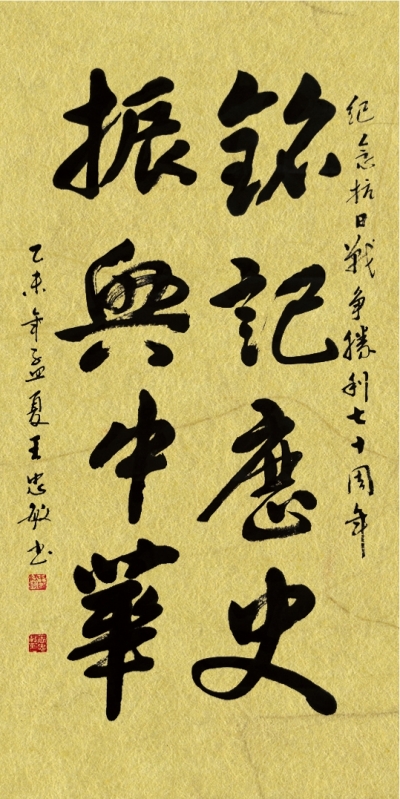 紀念抗日戰争勝利七十周年
銘記歷史
振興中華
乙未年孟夏王忠敏书